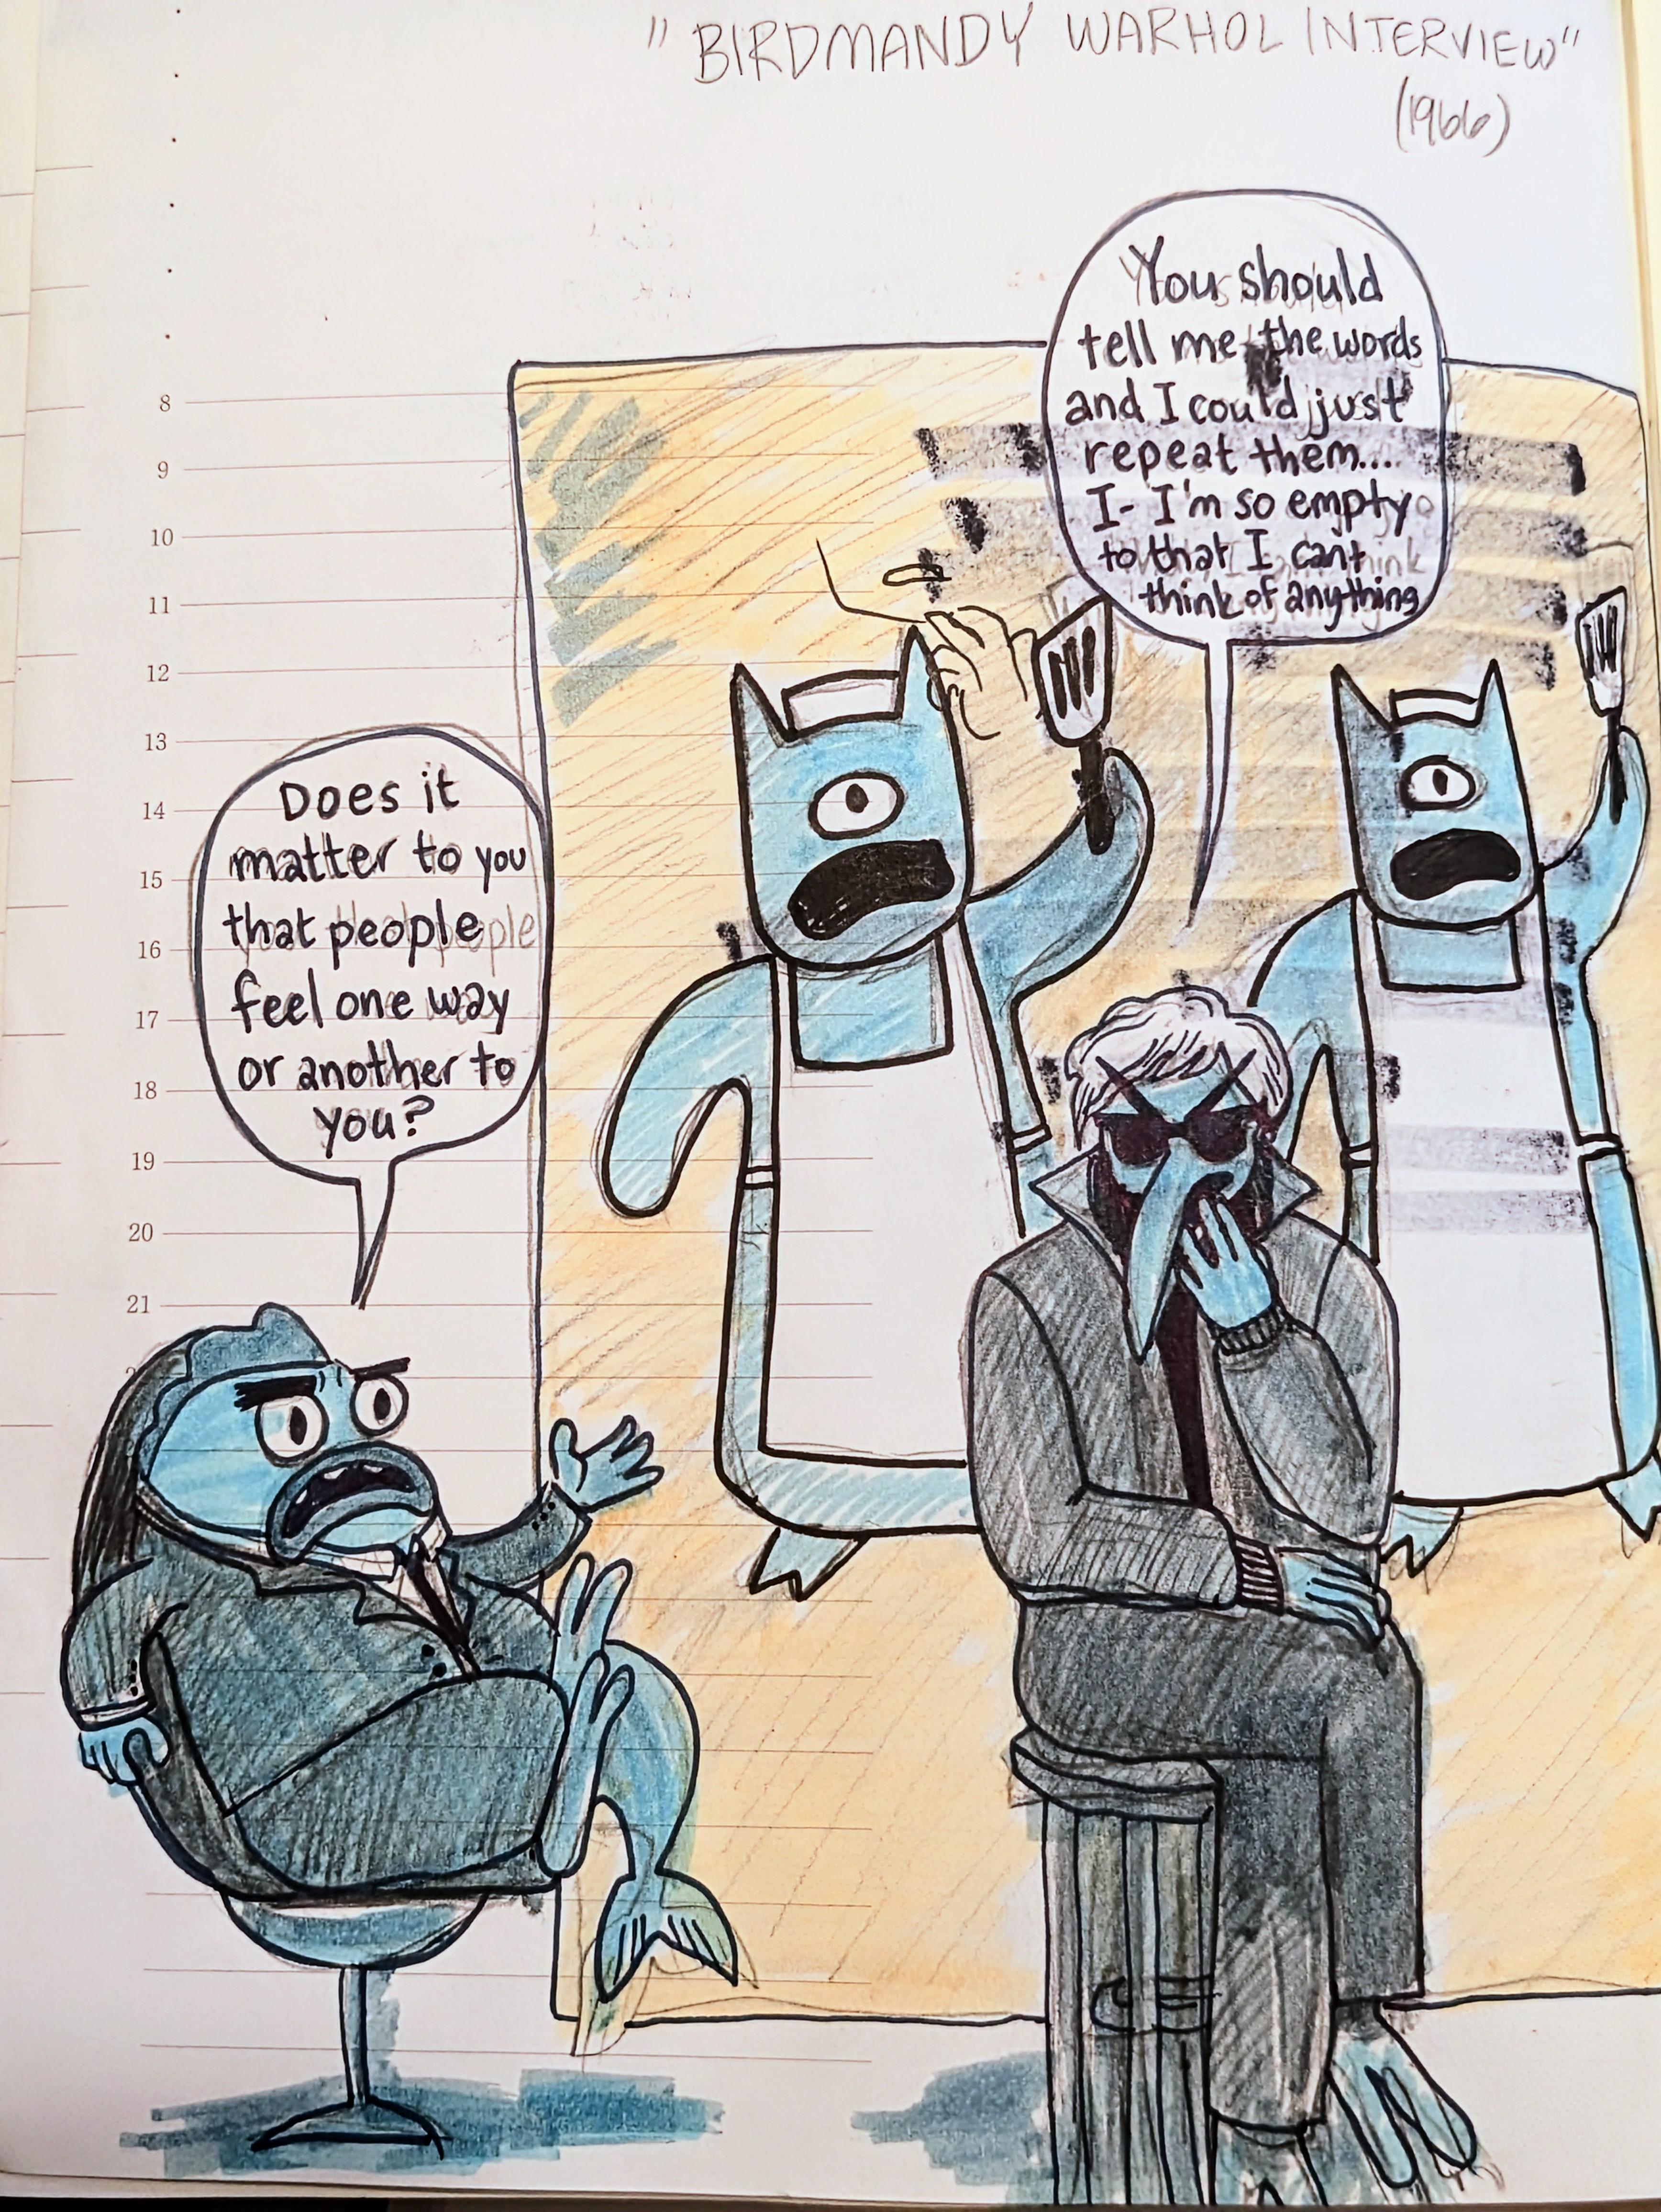 "BIRDMANDY WARHOL INTERVIEW"
(1966)
You should
tell me the words
and I could just
repeat them...
I- I'm so empty
to that I can't
think of anything
8
9
10
11
12
13
14
15
16
17
18
19
20
21
Does it
matter to you
that people
feel one way
or another to
you?